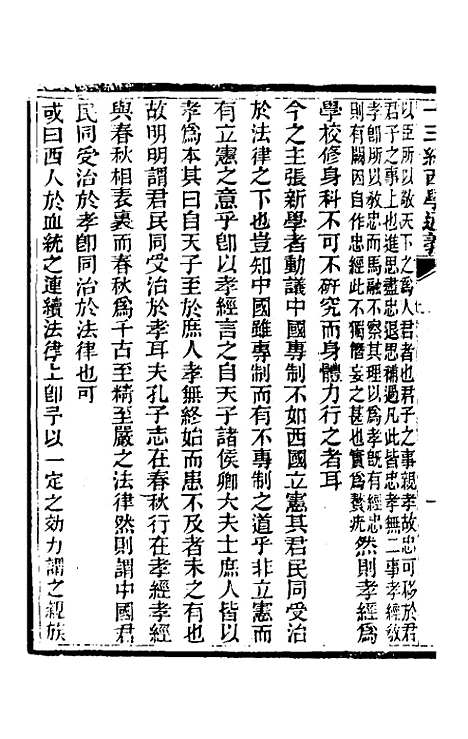 十三經西學通義
以臣所以敬天下之爲人君者也君子之事親孝故忠可移於君
君子之事上也進思盡忠退思補過凡此皆忠孝無二事孝經敎
孝卽所以敎忠而馬融不察其理以爲孝旣有經忠
則有闕因自作忠經此不獨僭妄之甚也實爲贅疣然則孝經爲
學校修身科不可不硏究而身體力行之者耳
今之主張新學者動議中國專制不如西國立憲其君民同受治
於法律之下也豈知中國雖專制而有不專制之道乎非立憲而
有立憲之意乎卽以孝經言之自天子諸侯卿大夫士庶人皆以
孝爲本其曰自天子至於庶人孝無終始而患不及者未之有也
故明明謂君民同受治於孝耳夫孔子志在春秋行在孝經孝經
與春秋相表裏而春秋爲千古至椅至嚴之法律然則謂中國君
民同受治於孝卽同治於法律也可
或曰西人於血統之連續法律上卽予以一定之効力謂之親族